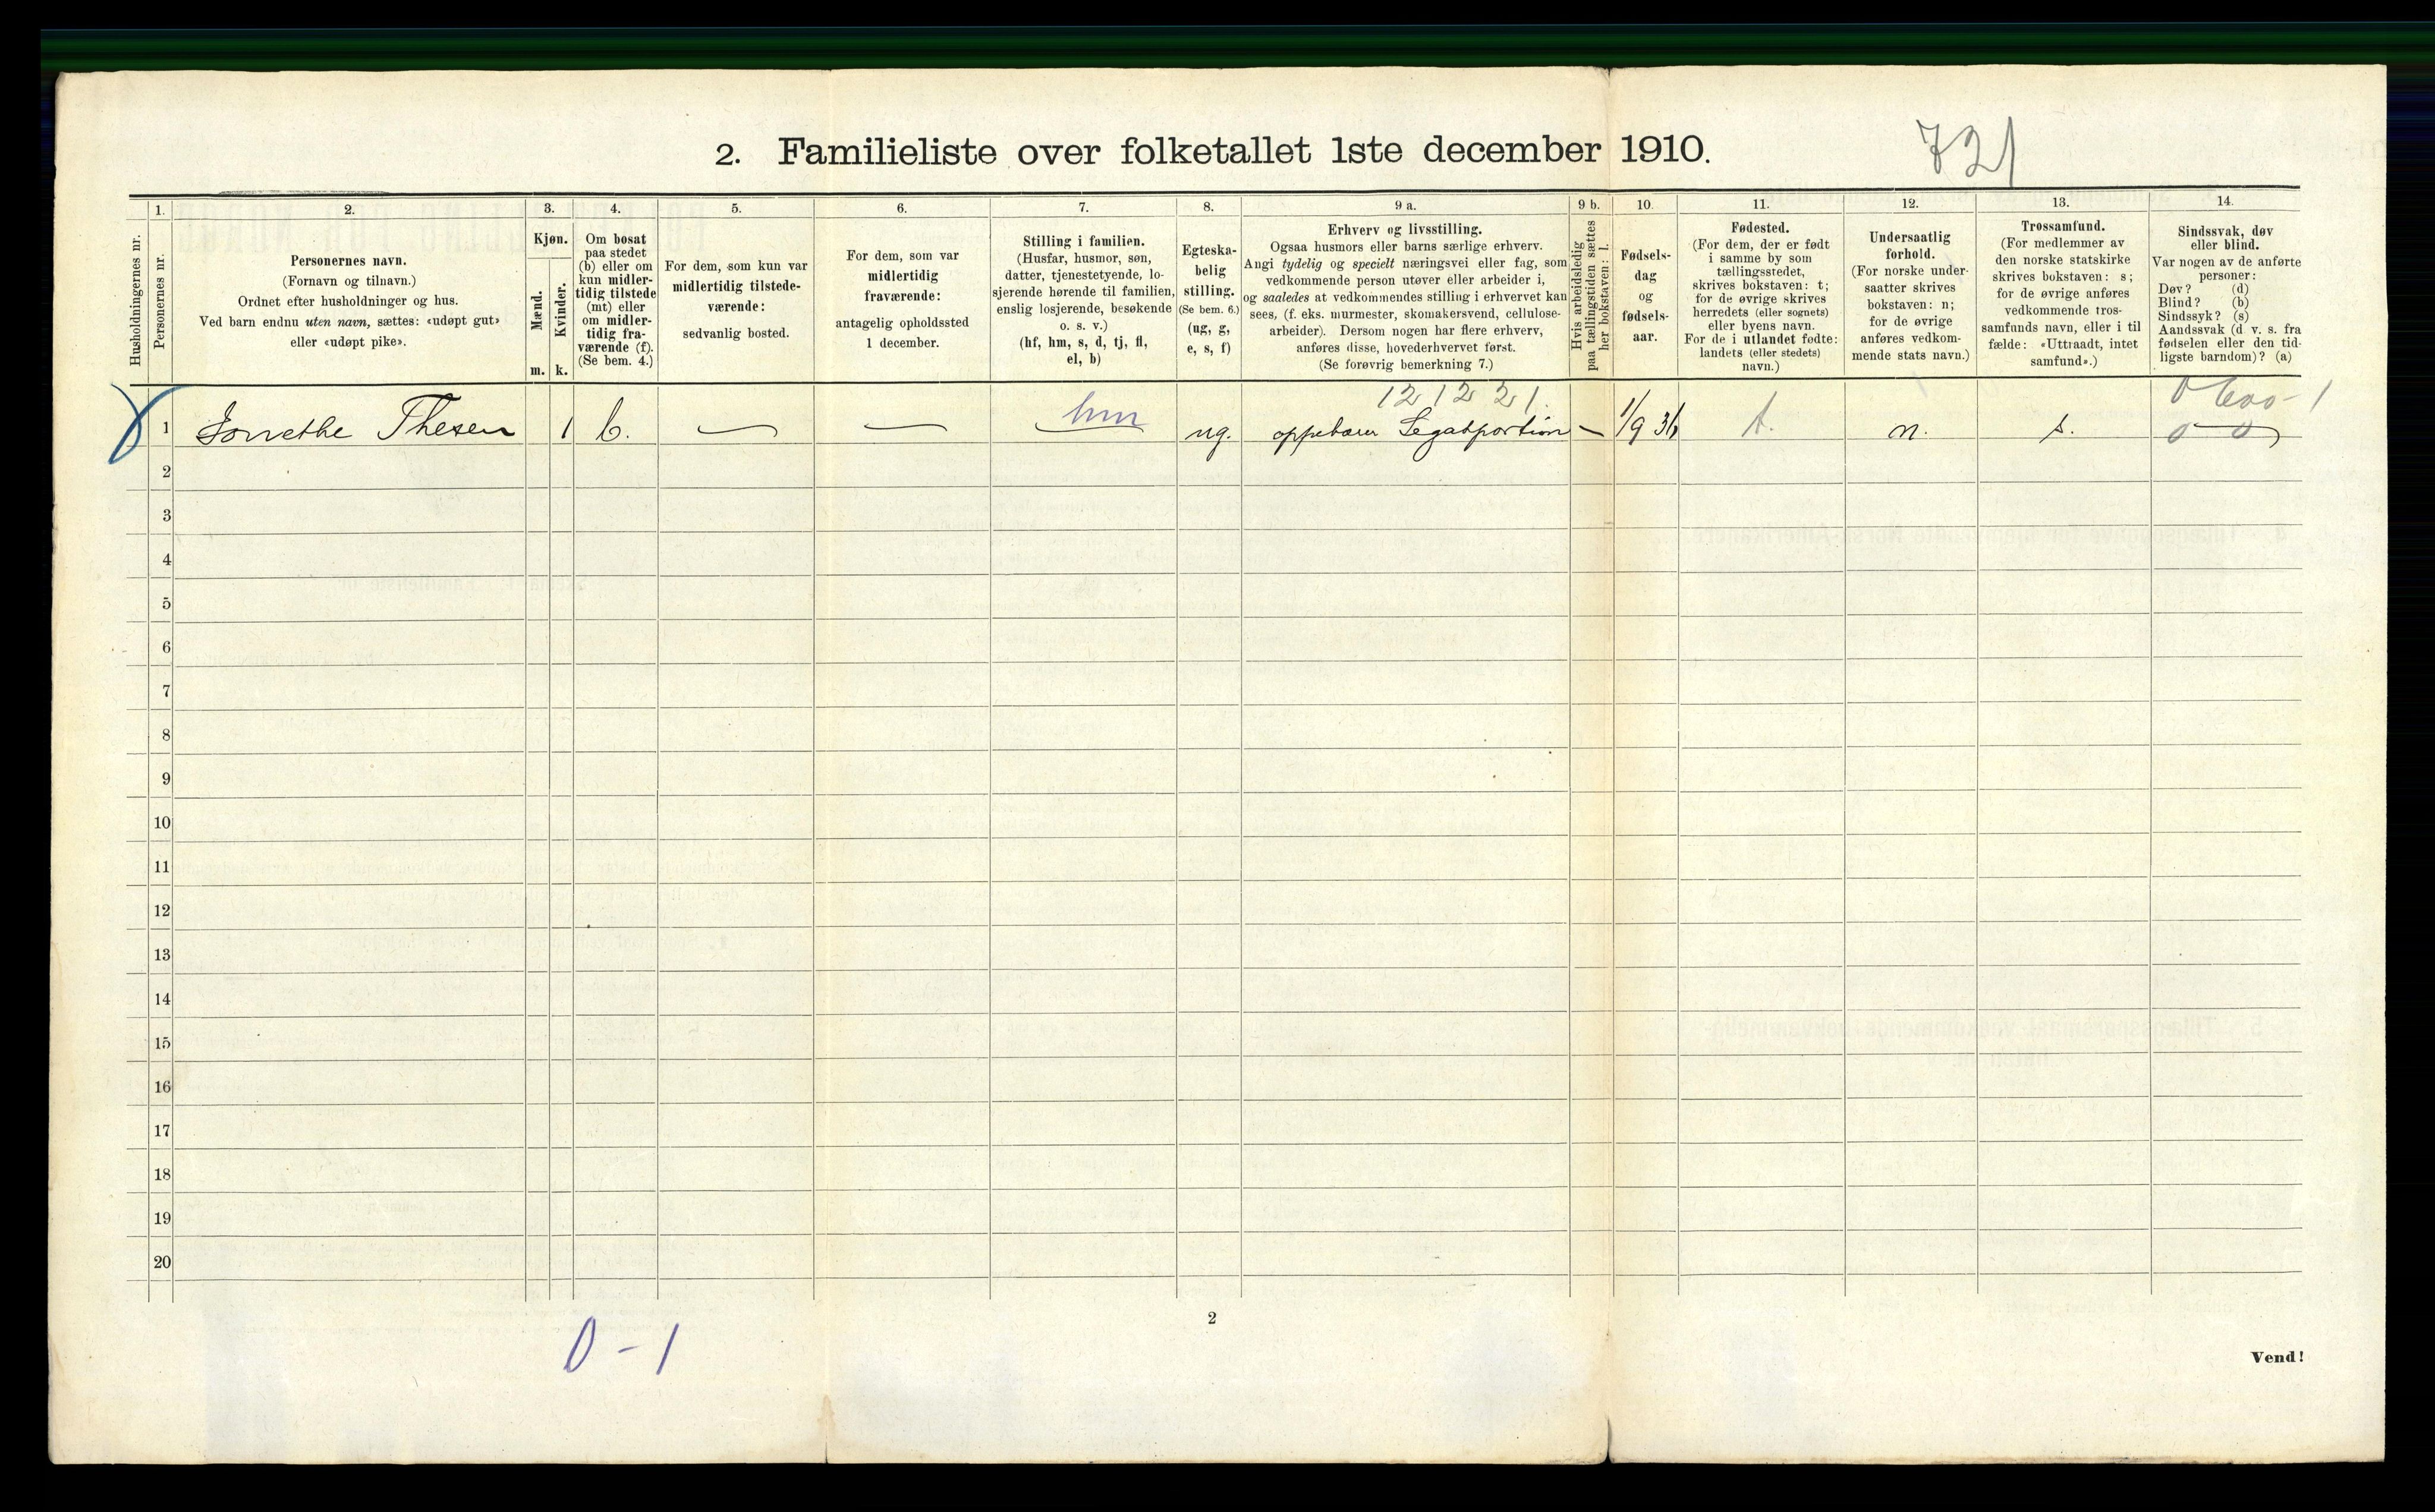 721
2. Familieliste over folketallet 1ste december 1910.
1. 2. 3. 4. 5. 6. 7. 8. 9 a. 9 b. 10. 11. 12. 13. 14.
Husholdningernes nr.
Personernes nr.
Personernes navn.
(Fornavn og tilnavn.)
Ordnet efter husholdninger og hus.
Ved barn endnu uten navn, sættes: «udøpt gut»
eller «udøpt pike».
Kjøn.
Mænd.
Kvinder.
m. k.
Om bosat
paa stedet
(b) eller om
kun midler-
tidig tilstede
(mt) eller
om midler-
tidig fra-
værende (f).
(Se bem. 4.)
For dem, som kun var
midlertidig tilstede-
værende:
sedvanlig bosted.
For dem, som var
midlertidig
fraværende:
antagelig opholdssted
1 december.
Stilling i familien.
(Husfar, husmor, søn,
datter, tjenestetyende, lo-
sjerende hørende til familien,
enslig losjerende, besøkende
o. s. v.)
(hf, hm, s, d, tj, fl,
el, b)
Egteska-
belig
stilling.
(Se bem. 6.)
(ug, g,
e, s, f)
Erhverv og livsstilling.
Ogsaa husmors eller barns særlige erhverv.
Angi tydelig og specielt næringsvei eller fag, som
vedkommende person utøver eller arbeider i,
og saaledes at vedkommendes stilling i erhvervet kan
sees, (f. eks. murmester, skomakersvend, cellulose-
arbeider). Dersom nogen har flere erhverv,
anføres disse, hovederhvervet først.
(Se forøvrig bemerkning 7.)
Hvis arbeidsledig
paa tællingstiden sættes
her bokstaven: l.
Fødsels-
dag
og
fødsels-
aar.
Fødested.
(For dem, der er født
i samme by som
tællingsstedet,
skrives bokstaven: t;
for de øvrige skrives
herredets (eller sognets)
eller byens navn.
For de i utlandet fødte:
landets (eller stedets)
navn.)
Undersaatlig
forhold.
(For norske under-
saatter skrives
bokstaven: n;
for de øvrige
anføres vedkom-
mende stats navn.)
Trossamfund.
(For medlemmer av
den norske statskirke
skrives bokstaven: s;
for de øvrige anføres
vedkommende tros-
samfunds navn, eller i til
fælde: «Uttraadt, intet
samfund».)
Sindssvak, døv
eller blind.
Var nogen av de anførte
personer:
Døv? (d)
Blind? (b)
Sindssyk? (s)
Aandssvak (d v. s. fra
fødselen eller den tid-
ligste barndom)? (a)
12 12 21.
1 Thesen 1 b. — — hm ug. oppebærer Legatportion — 1/9 31 t. n. s.
2
3
4
5
6
7
8
9
10
11
12
13
14
15
16
17
18
19
20
2
0 - 1
Vend!